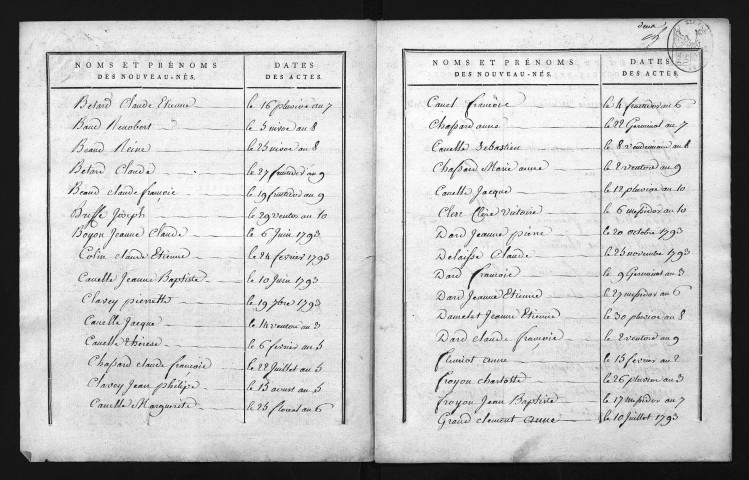 NOMS ET PRÉNOMS DES NOUVEAU-NÉS. DATES DES ACTES.
Betard Claude Etienne le 16 pluviose an 7
Baud Renobert le 5 nivose an 8
Beaud Reine le 25 nivose an 8
Betard Claude le 27 fructidor an 9
Beaud claude françoie le 19 fructidor an 9
Buffe Joseph le 29 ventos an 10
Boyon Jeanne Claude le 6 Juin 1793
Colin claude Etienne le 24 fevrier 1793
Canelle Jeanne Baptiste le 10 Juin 1793
Clavey pierrette le 19 7bre 1793
Canelle Jacque le 14 ventose an 3
Canelle thérese le 6 fevrier an 5
Chapard claude françoie le 22 Juillet an 5
Clavey Jean philipe le 15 aoust an 5
Canelle Marguerite le 25 floreal an 6
deux
NOMS ET PRÉNOMS DES NOUVEAU-NÉS. DATES DES ACTES.
Canel françoise le 4 fructidor an 6
Chapard anne le 22 Germinal an 7
Canelle Sebastien le 8 vendemiaire an 8
Chapard Marie anne le 2 ventose an 9
Canelle Jacque le 12 pluviose an 10
Clerc Claire Victoire le 6 messidor an 10
Dard Jeanne pierre le 20 octobre 1793
Delaisse Claude le 25 novembre 1793
Dard françoie le 9 Germinal an 3
Dard Jeanne Etienne le 27 messidor an 6
Damelet Jeanne Etienne le 30 pluviose an 8
Dard claude françoie le 2 ventose an 9
fleuriot anne le 15 fevrier an 2
froyon charlotte le 26 pluviose an 3
froyon Jean Baptiste le 17 messidor an 7
Grand clement anne le 10 Juillet 1793